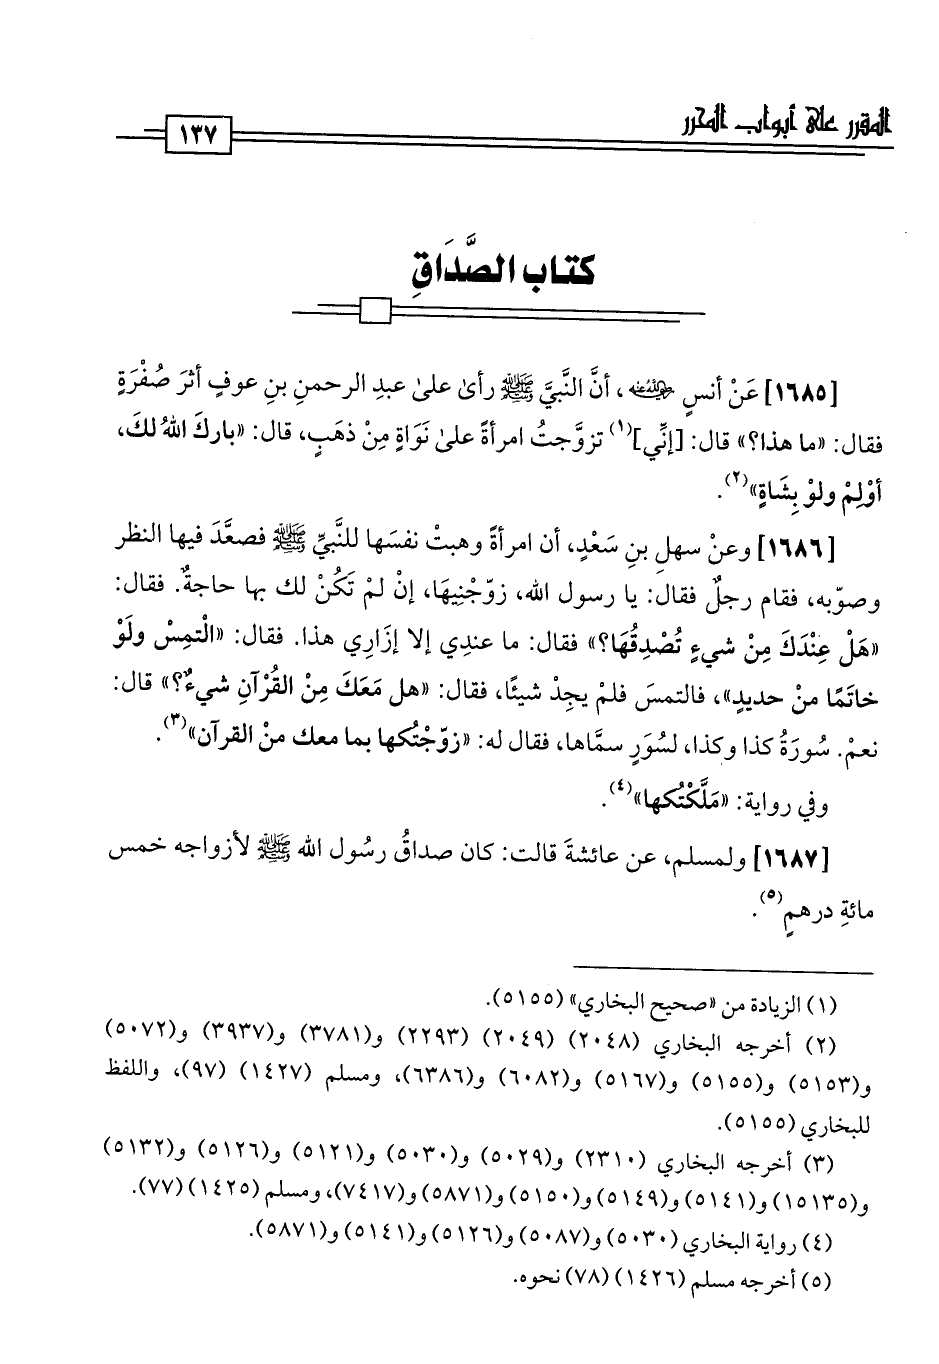 المقرر على أبواب المحرر
١٣٧
كتاب الصَّدَاقِ
[١٦٨٥] عَنْ أنسٍ رضي الله عنه، أنَّ النَّبيَّ ﷺ رأى على عبدِ الرحمنِ بنِ عوفٍ أثرَ صُفْرَةٍ
فقال: «ما هذا؟» قال: [إنِّي](١) تزوَّجتُ امرأةً على نَوَاةٍ مِنْ ذهَبٍ، قال: «باركَ اللهُ لكَ،
أوْلِمْ ولوْ بِشَاةٍ»(٢).
[١٦٨٦] وعنْ سهلِ بنِ سَعْدٍ، أن امرأةً وهبتْ نفسَها للنَّبيِّ ﷺ فصعَّدَ فيها النظر
وصوّبه، فقام رجلٌ فقال: يا رسول الله، زوّجْنِيهَا، إنْ لمْ تَكُنْ لك بها حاجةٌ. فقال:
«هَلْ عِنْدَكَ مِنْ شيءٍ تُصْدِقُهَا؟» فقال: ما عندِي إلا إزَارِي هذا. فقال: «الْتمِسْ ولَوْ
خاتَمًا منْ حديدٍ»، فالتمسَ فلمْ يجِدْ شيئًا، فقال: «هل مَعَكَ مِنَ القُرْآنِ شيءٌ؟» قال:
نعمْ. سُورَةُ كذا وكذا، لسُوَرٍ سمَّاها، فقال له: «زوّجْتُكها بما معك منْ القرآن»(٣).
وفي رواية: «مَلَّكْتُكها»(٤).
[١٦٨٧] ولمسلم، عن عائشةَ قالت: كان صداقُ رسُول الله ﷺ لأزواجه خمس
مائةِ درهمٍ(٥).
(١) الزيادة من «صحيح البخاري» (٥١٥٥).
(٢) أخرجه البخاري (٢٠٤٨) (٢٠٤٩) (٢٢٩٣) و(٣٧٨١) و(٣٩٣٧) و(٥٠٧٢)
و(٥١٥٣) و(٥١٥٥) و(٥١٦٧) و(٦٠٨٢) و(٦٣٨٦)، ومسلم (١٤٢٧) (٩٧)، واللفظ
للبخاري (٥١٥٥).
(٣) أخرجه البخاري (٢٣١٠) و(٥٠٢٩) و(٥٠٣٠) و(٥١٢١) و(٥١٢٦) و(٥١٣٢)
و(١٥١٣٥) و(٥١٤١) و(٥١٤٩) و(٥١٥٠) و(٥٨٧١) و(٧٤١٧)، ومسلم (١٤٢٥) (٧٧).
(٤) رواية البخاري (٥٠٣٠) و(٥٠٨٧) و(٥١٢٦) و(٥١٤١) و(٥٨٧١).
(٥) أخرجه مسلم (١٤٢٦) (٧٨) نحوه.